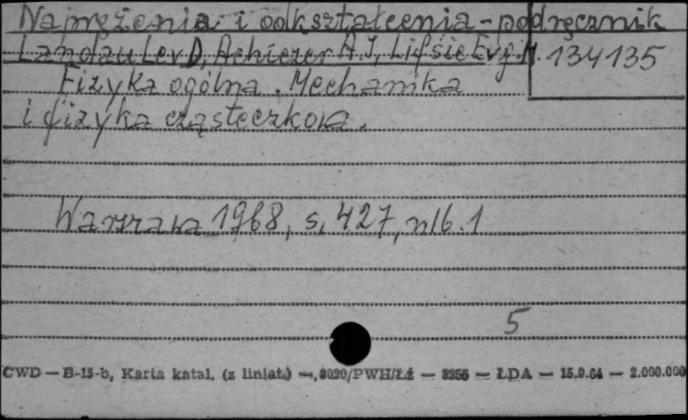 Naprężenia i odkształcenia - podręcznik
Landau Lev D, Achiezer A. J, Lifšic Evg. M. 134135
Fizyka ogólna. Mechanika
i fizyka cząsteczkowa.
Warszawa 1968, s. 427, nlb. 1
5
CWD — B-15-b, Karta katal. (z liniat.) —, 8020/PWH/Łż — 3255 — ŁDA — 15.9.64 — 2.000.000